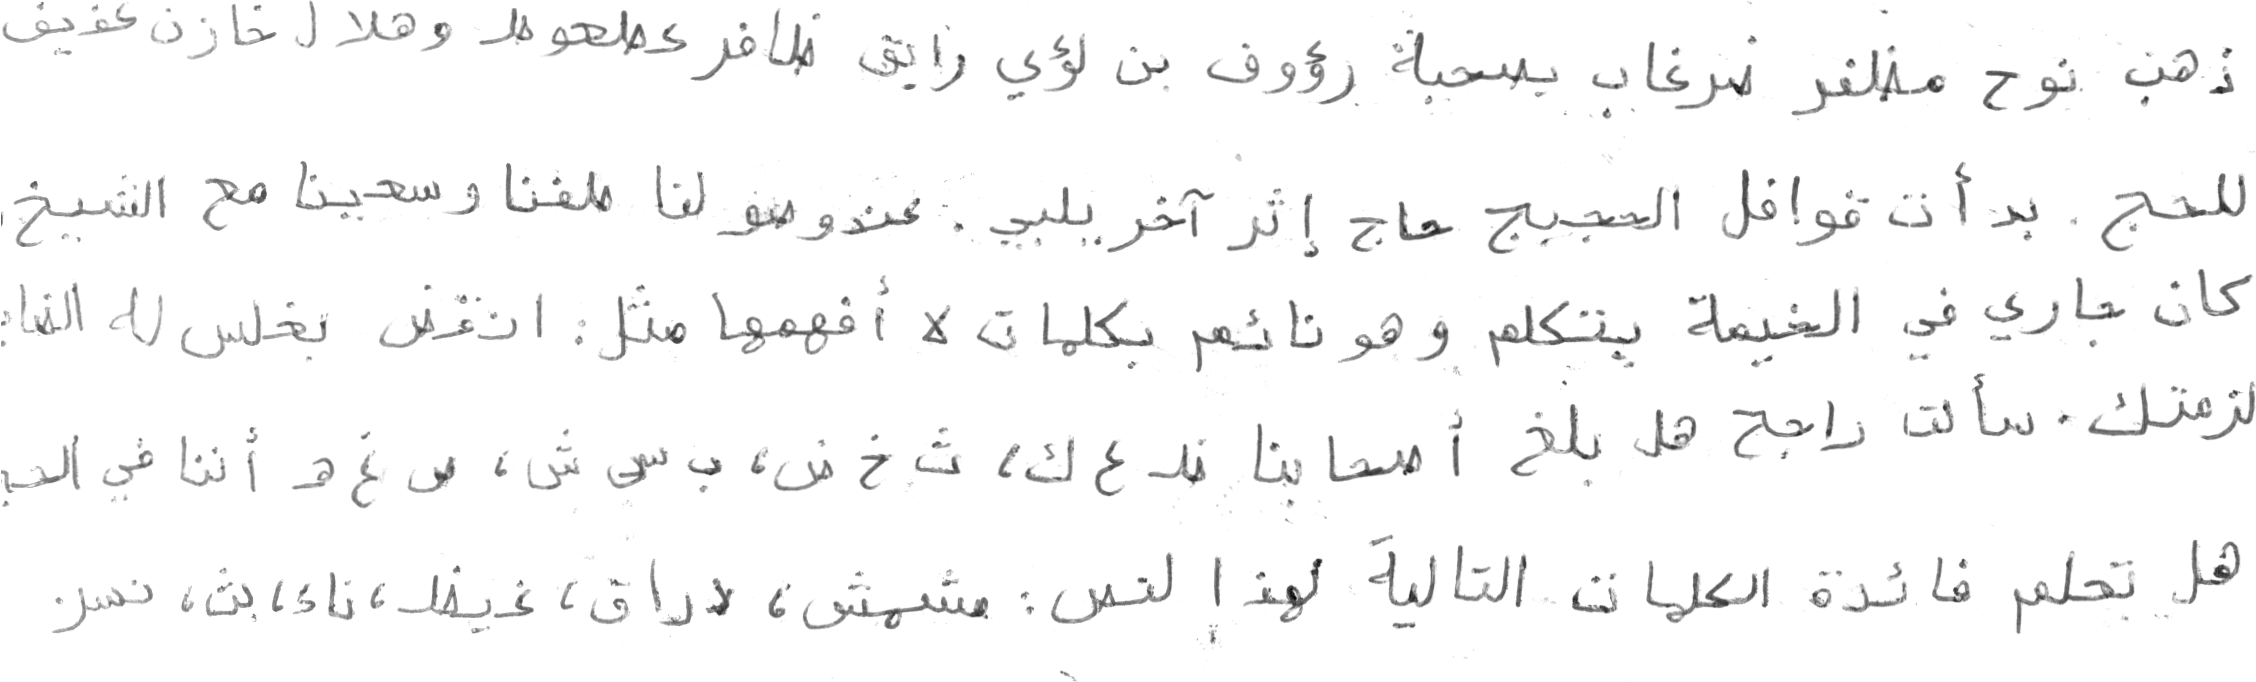 ذهب نوح مظفر ضرغاب بصحبة رؤوف بن لؤي رايق ظافر عطعوط وهلال خازن عفيف
للحج. بدأت قوافل الحجيج حاج إثر آخر يلبي. عند وضو لنا طفنا وسعينا مع الشيخ
كان جاري في الخيمة يتكلم وهو نائم بكلمات لا أفهمها مثل: انقض بخلس لله الضا
لزمتك. سألت راجح هل بلغ أصحابنا ظ ع ك، ث خ ض، ب سى ش، ص غ هـ أننا في الحج
هل تعلم فائدة الكلمات التالية لهذا لنص: مشمش، لاراق، غيظ، ناء، بث، نسر